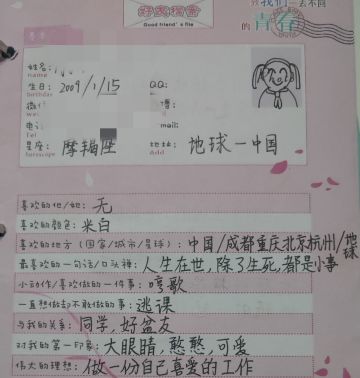 好友档案
致我们一去不回
Good friend's file
的青春
姓名:
name
生日: 2009/1/15 QQ:
birthday
微信
电话 mail:
Tel
星座: 摩羯座 地址: 地球-中国
horoscope Add
喜欢的他/她: 无
喜欢的颜色: 米白
喜欢的地方(国家/城市/星球): 中国/成都重庆北京杭州/地球
最喜欢的一句话/口头禅: 人生在世,除了生死,都是小事
小动作/喜欢做的一件事: 哼歌
一直想做却不敢做的事: 逃课
与我的关系: 同学,好盆友
对我的第一印象: 大眼睛,憨憨,可爱
伟大的理想: 做一份自己喜爱的工作